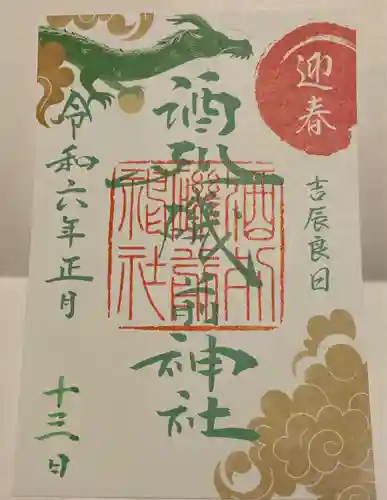 迎春
吉辰良日
酒列磯前神社
酒列磯前神社
令和六年正月
十三日